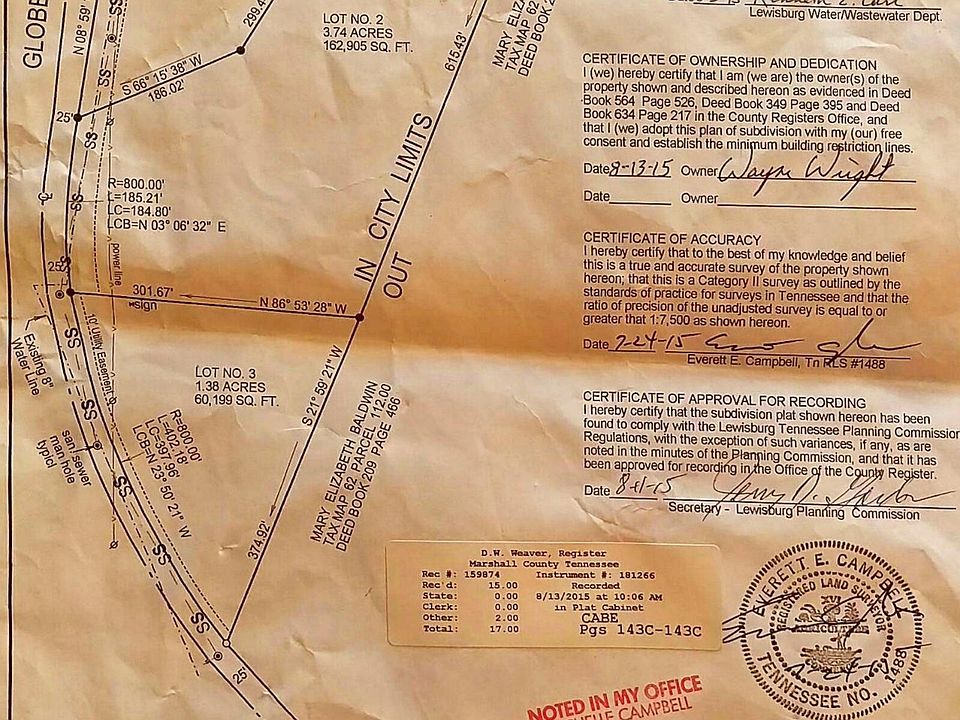 Lewisburg Water/Wastewater Dept.
GLOBE
N 08° 59'
SS
299.4
LOT NO. 2
3.74 ACRES
162,905 SQ. FT.
615.43'
MARY ELIZABETH
TAX MAP 62
DEED BOOK 2
S 66° 15' 38" W
186.02'
25'
SS
SS
R=800.00'
L=185.21'
LC=184.80'
LCB=N 03° 06' 32" E
IN CITY LIMITS
OUT
25'
SS
power line
301.67'
sign
N 86° 53' 28" W
Existing 8"
Water Line
SS
10' Utility Easement
LOT NO. 3
1.38 ACRES
60,199 SQ. FT.
S 21° 59' 21" W
374.92'
MARY ELIZABETH BALDWIN
TAX MAP 62 PARCEL 112.00
DEED BOOK 209 PAGE 466
SS
san. sewer
man hole
typicl
R=800.00'
L=402.18'
LC=397.96'
LCB=N 23° 50' 21" W
SS
SS
SS
25'
CERTIFICATE OF OWNERSHIP AND DEDICATION
I (we) hereby certify that I am (we are) the owner(s) of the
property shown and described hereon as evidenced in Deed
Book 564 Page 526, Deed Book 349 Page 395 and Deed
Book 634 Page 217 in the County Registers Office, and
that I (we) adopt this plan of subdivision with my (our) free
consent and establish the minimum building restriction lines.
Date 8-13-15 Owner Wayne Wright
Date Owner
CERTIFICATE OF ACCURACY
I hereby certify that to the best of my knowledge and belief
this is a true and accurate survey of the property shown
hereon; that this is a Category II survey as outlined by the
standards of practice for surveys in Tennessee and that the
ratio of precision of the unadjusted survey is equal to or
greater that 1:7,500 as shown hereon.
Date 7-24-15
Everett E. Campbell, Tn RLS #1488
CERTIFICATE OF APPROVAL FOR RECORDING
I hereby certify that the subdivision plat shown hereon has been
found to comply with the Lewisburg Tennessee Planning Commission
Regulations, with the exception of such variances, if any, as are
noted in the minutes of the Planning Commission, and that it has
been approved for recording in the Office of the County Register.
Date
Secretary - Lewisburg Planning Commission
D.W. Weaver, Register
Marshall County Tennessee
Rec #: 159874 Instrument #: 181266
Rec'd: 15.00 Recorded
State: 0.00 8/13/2015 at 10:06 AM
Clerk: 0.00 in Plat Cabinet
Other: 2.00 CABE
Total: 17.00 Pgs 143C-143C
EVERETT E. CAMPBELL
REGISTERED LAND SURVEYOR
XVI
AGRICULTURE
COMMERCE
TENNESSEE NO. 1488
NOTED IN MY OFFICE
CAMPBELL